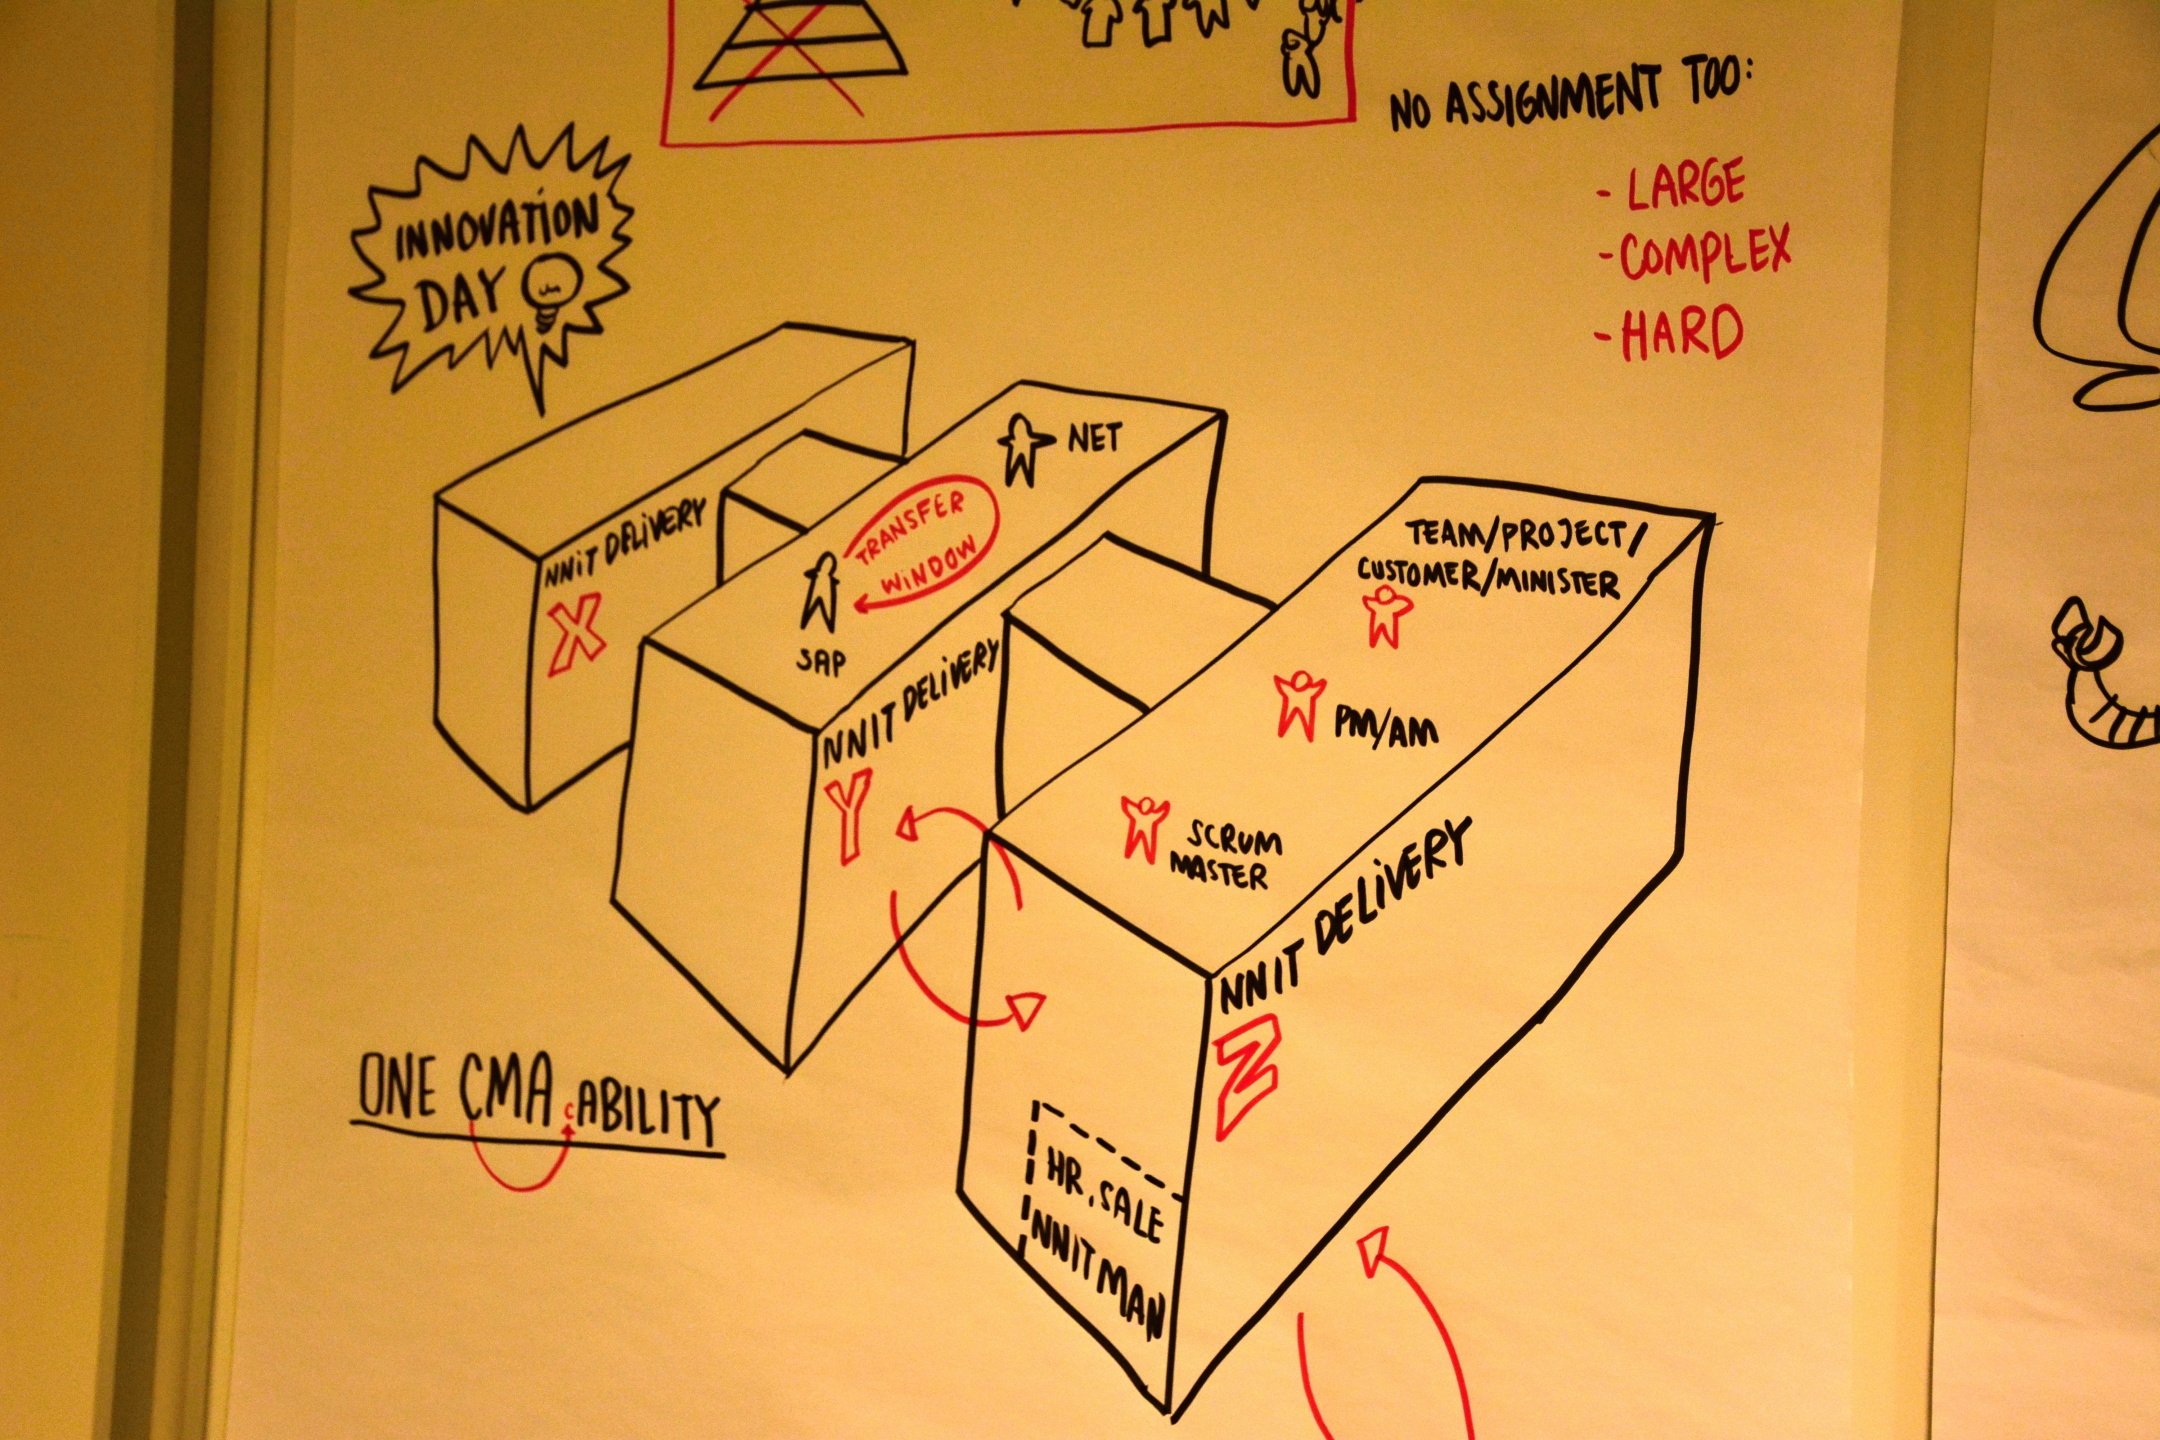 NO ASSIGNMENT TOO:
- LARGE
- COMPLEX
- HARD
INNOVATION
DAY
NET
TRANSFER
WINDOW
SAP
NNIT DELIVERY
X
NNIT DELIVERY
Y
TEAM/PROJECT/
CUSTOMER/MINISTER
PM/AM
SCRUM
MASTER
NNIT DELIVERY
Z
HR, SALE
NNIT MAN
ONE CMA cABILITY